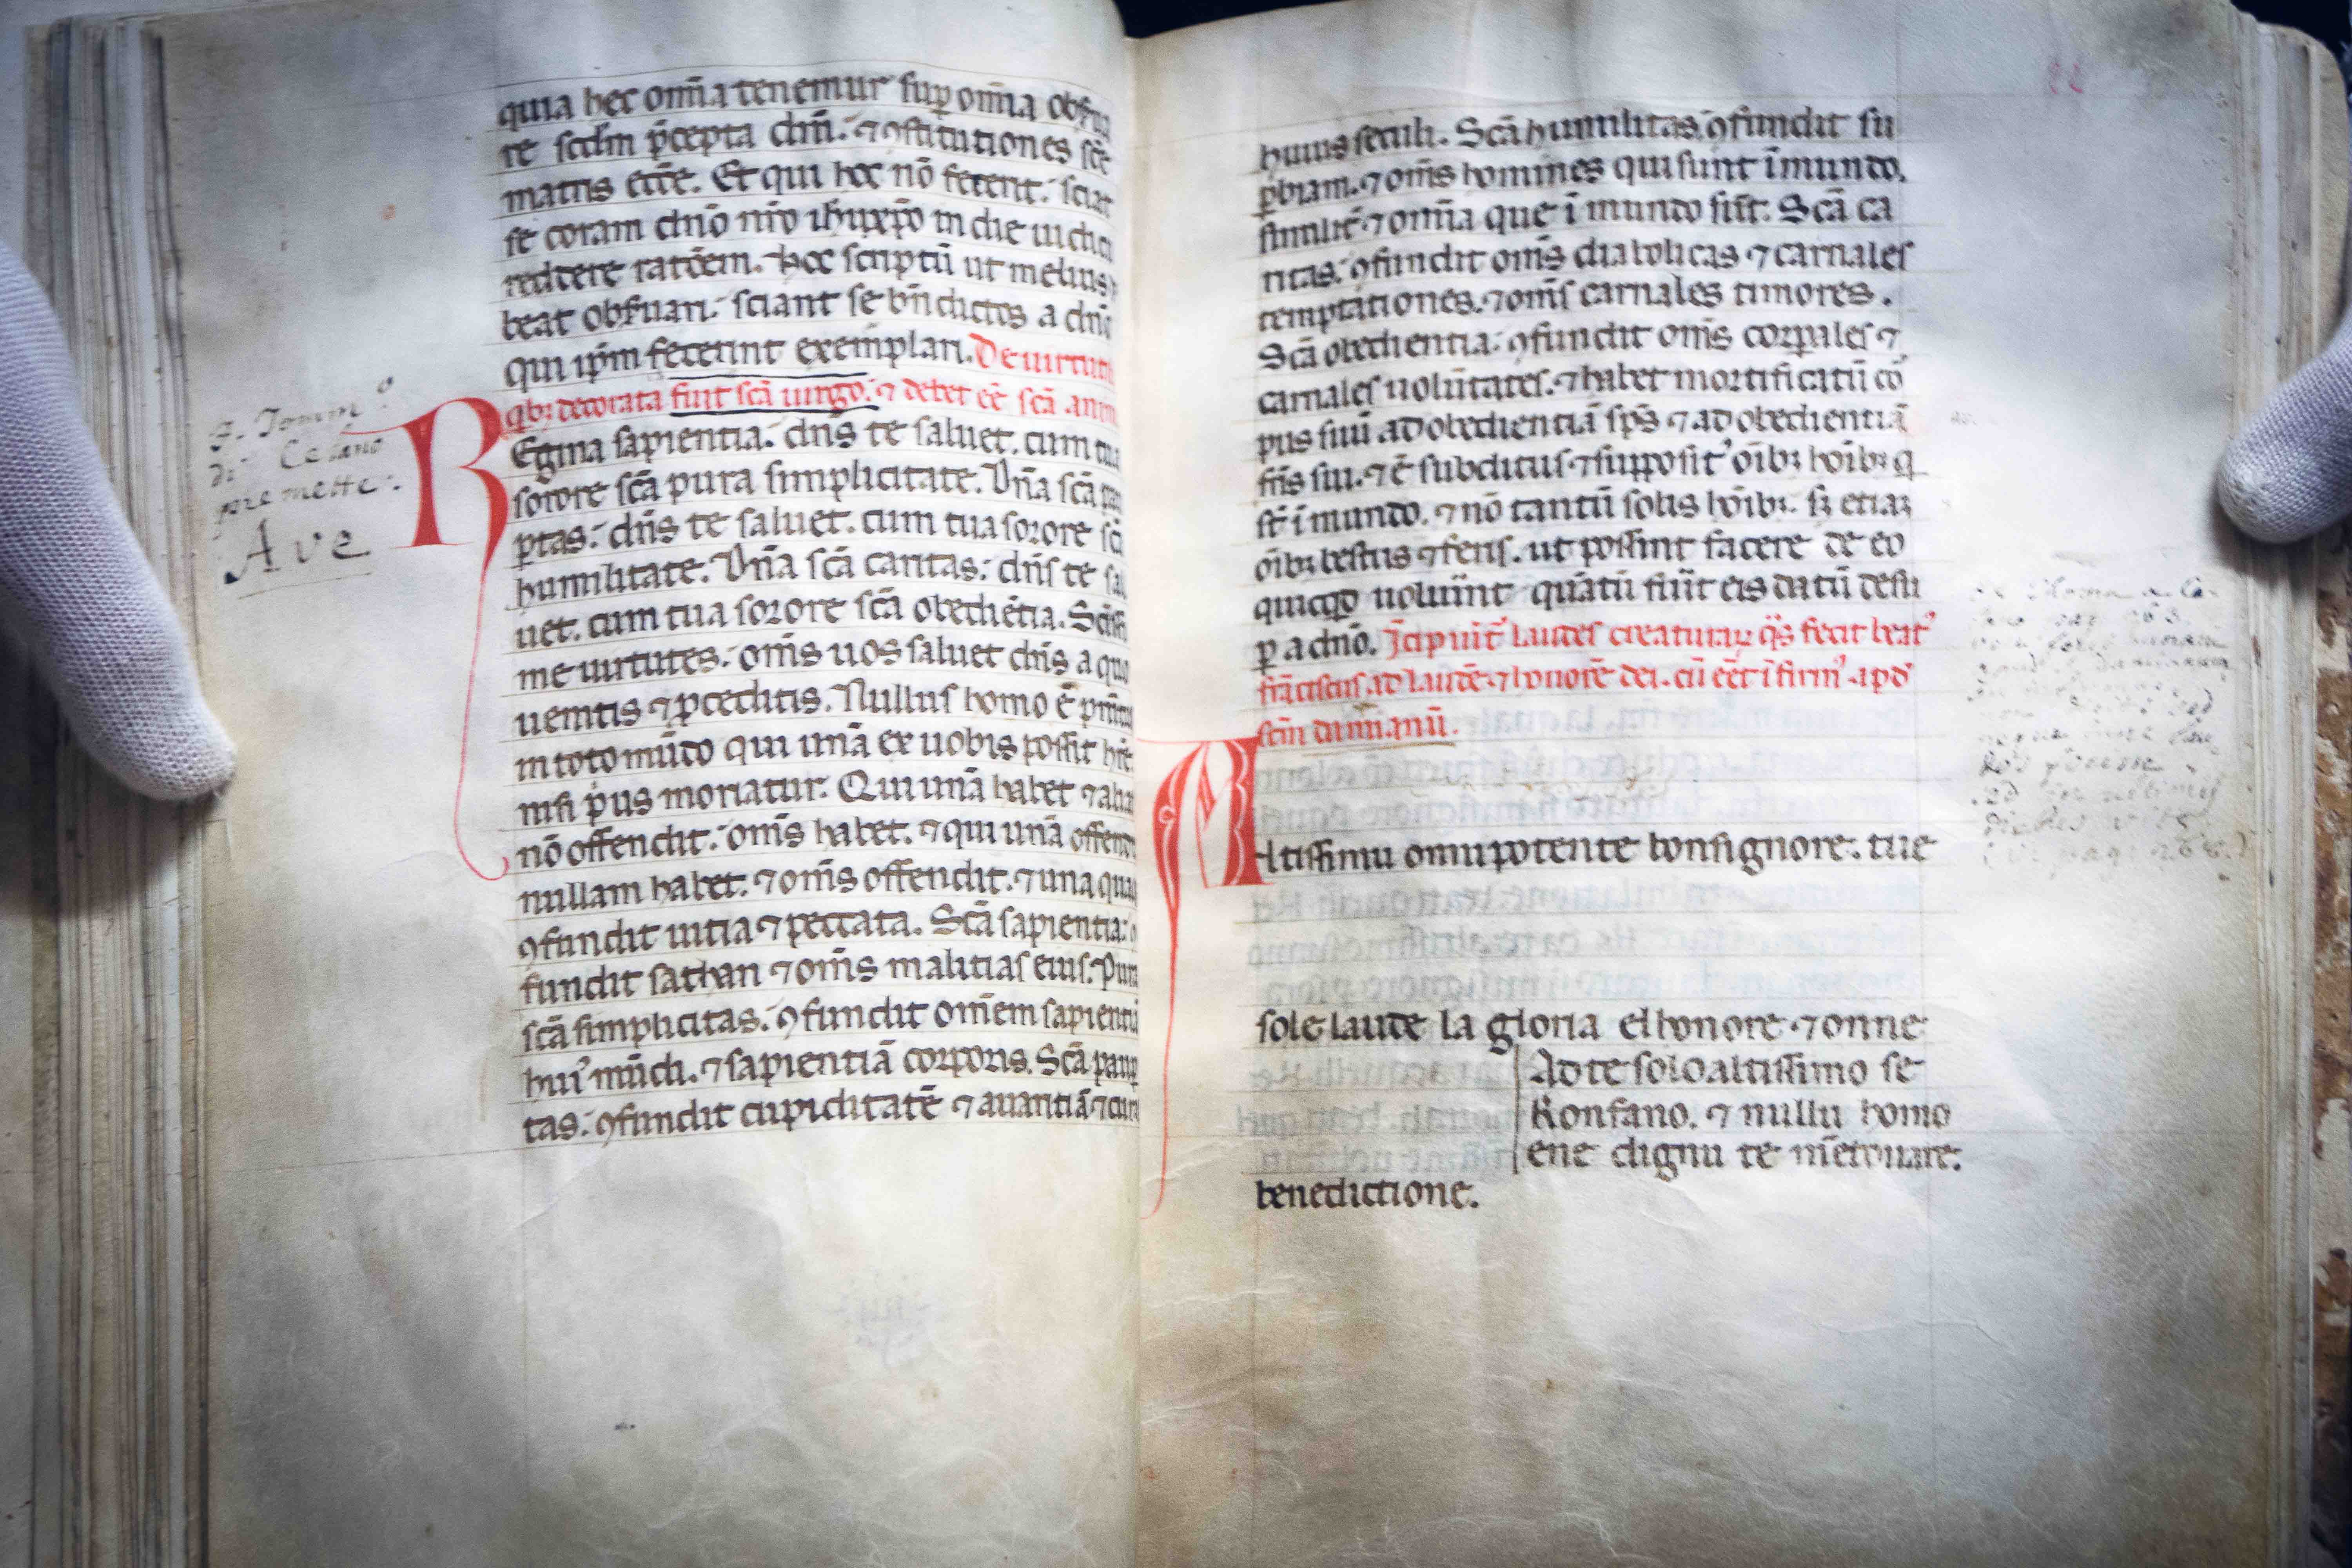 quia hec om̄ia tenemur sup om̄ia obẜua
re scdm p̄cepta dn̄i. ⁊ ꝯstitutiones sc̄e
matris ecc̄e. Et qui hoc nō fecerit. sciat
se coram dn̄o nr̄o ih̄u xp̄o in die iudicii
reddere ratōem. hoc scriptū ut melius
beat obẜuari. sciant se bn̄dictos a dn̄o
qui ip̄m fecerint exemplari. De uirtuti
qbꝫ decorata fuit sc̄a uirgo. ⁊ debet ēē sc̄a anima
REgina sapientia. dn̄s te saluet. cum tua
sorore sc̄a pura simplicitate. Dn̄a sc̄a pau
ptas. dn̄s te saluet. cum tua sorore sc̄a
humilitate. Dn̄a sc̄a caritas. dn̄s te sal
uet. cum tua sorore sc̄a obediētia. Sc̄issi
me uirtutes. om̄s uos saluet dn̄s a quo
uenitis ⁊ pceditis. Nullus homo ē penitus
in toto mūdo qui unā ex uobis possit hr̄e
nisi pus moriatur. Qui unā habet ⁊ alias
nō offendit. om̄s habet. ⁊ qui unā offendit
nullam habet. ⁊ om̄s offendit. ⁊ una quaꝫ
ꝯfundit uitia ⁊ peccata. Sc̄a sapientia. ꝯ
fundit sathan ⁊ om̄s malitias eius. Pura
sc̄a simplicitas. ꝯfundit om̄em sapientiā
huiꝰ mūdi. ⁊ sapientiā corporis. Sc̄a paup
tas. ꝯfundit cupiditatē ⁊ auaritiā ⁊ curas
di Celano
premette:
Ave
22
huius seculi. Sc̄a humilitas ꝯfundit su
pbiam. ⁊ om̄s homines qui sunt ī mundo.
similit̄ ⁊ om̄ia que ī mundo sūt. Sc̄a ca
ritas. ꝯfundit om̄s diabolicas ⁊ carnales
temptationes. ⁊ om̄s carnales timores.
Sc̄a obedientia. ꝯfundit om̄s corpales ⁊
carnales uolūtates. ⁊ habet mortificatū cor
pus suū ad obedientiā sp̄s ⁊ ad obedientiā
fr̄is sui. ⁊ ē subditus ⁊ supposit' oībꝫ hoībꝫ q
st̄ ī mundo. ⁊ nō tantū solis hoībꝫ. sꝫ etiaꝫ
oībꝫ bestiis ⁊ feris. ut possint facere de eo
quicqd uoluīnt quātū fūit eis datū desu
p a dn̄o. Īcipiūt laudes creaturaꝝ q̄s fecit beat'
frāciscus ad laudē ⁊ honorē dei. cū eēt ī firm' apd'
scm̄ damianū.
Altissimu omnipotente bonsignore. tue
sole laude la gloria elhonore ⁊ onne
Ad te solo altissimo se
konfano. ⁊ nullu homo
ene dignu te m̄etouare.
benedictione.